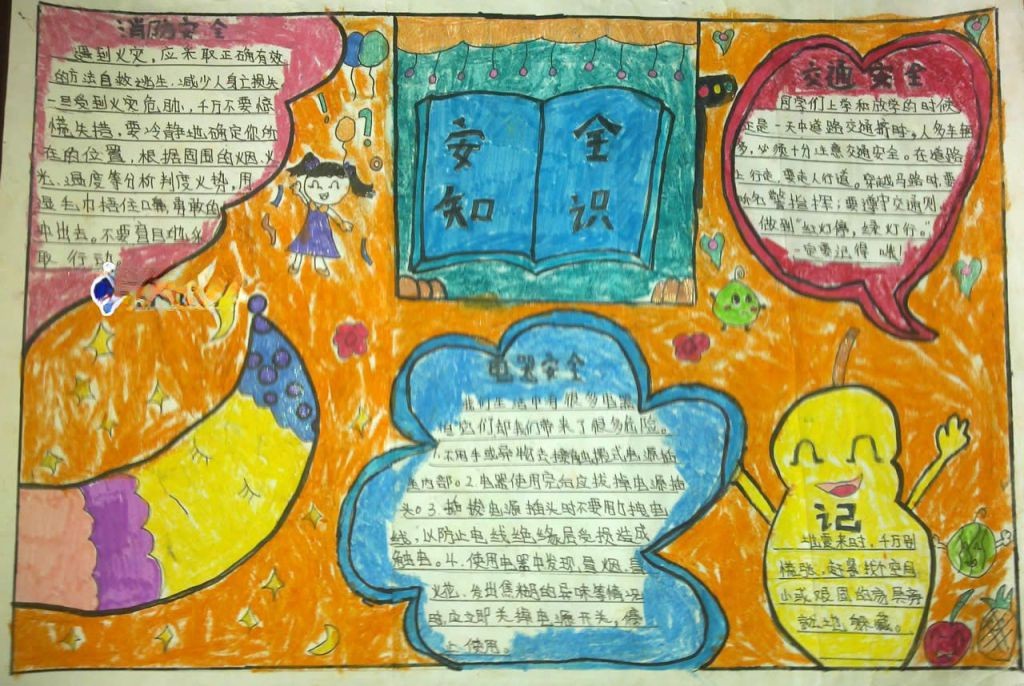 消防安全
遇到火灾，应采取正确有效
的方法自救逃生，减少人身亡损失
一旦受到火灾危胁，千万不要惊
慌失措，要冷静地确定你所
在的位置，根据周围的烟、火
光、温度等分析判度火势，用
湿毛巾捂住口鼻，勇敢的
冲出去。不要盲目地采
取行动。
安全
知识
交通安全
同学们上学和放学的时候
正是一天中道路交通挤时。人多车辆
多，必须十分注意交通安全。在道路
上行走，要走人行道。穿越马路时，要
听 警指挥；要遵守交通则
做到“红灯停，绿灯行。”
一定要记得哦！
电器安全
我们生活中有很多电器
但它们却我们带来了很多危险。
1.不用手或异物去接触摆式电源插
座内部。2.电器使用完后应拔掉电源插
头。3.插拔电源插头时不要用力拽电
线，以防止电线绝缘层受损造成
触电。4.使用电器中发现冒烟、冒
火花，发出焦糊的异味等情况
时应立即关掉电源开关，停
止使用。
记
地震来时，千万别
慌张，赶紧找个空间
小或很固的家具旁
就地躲藏。